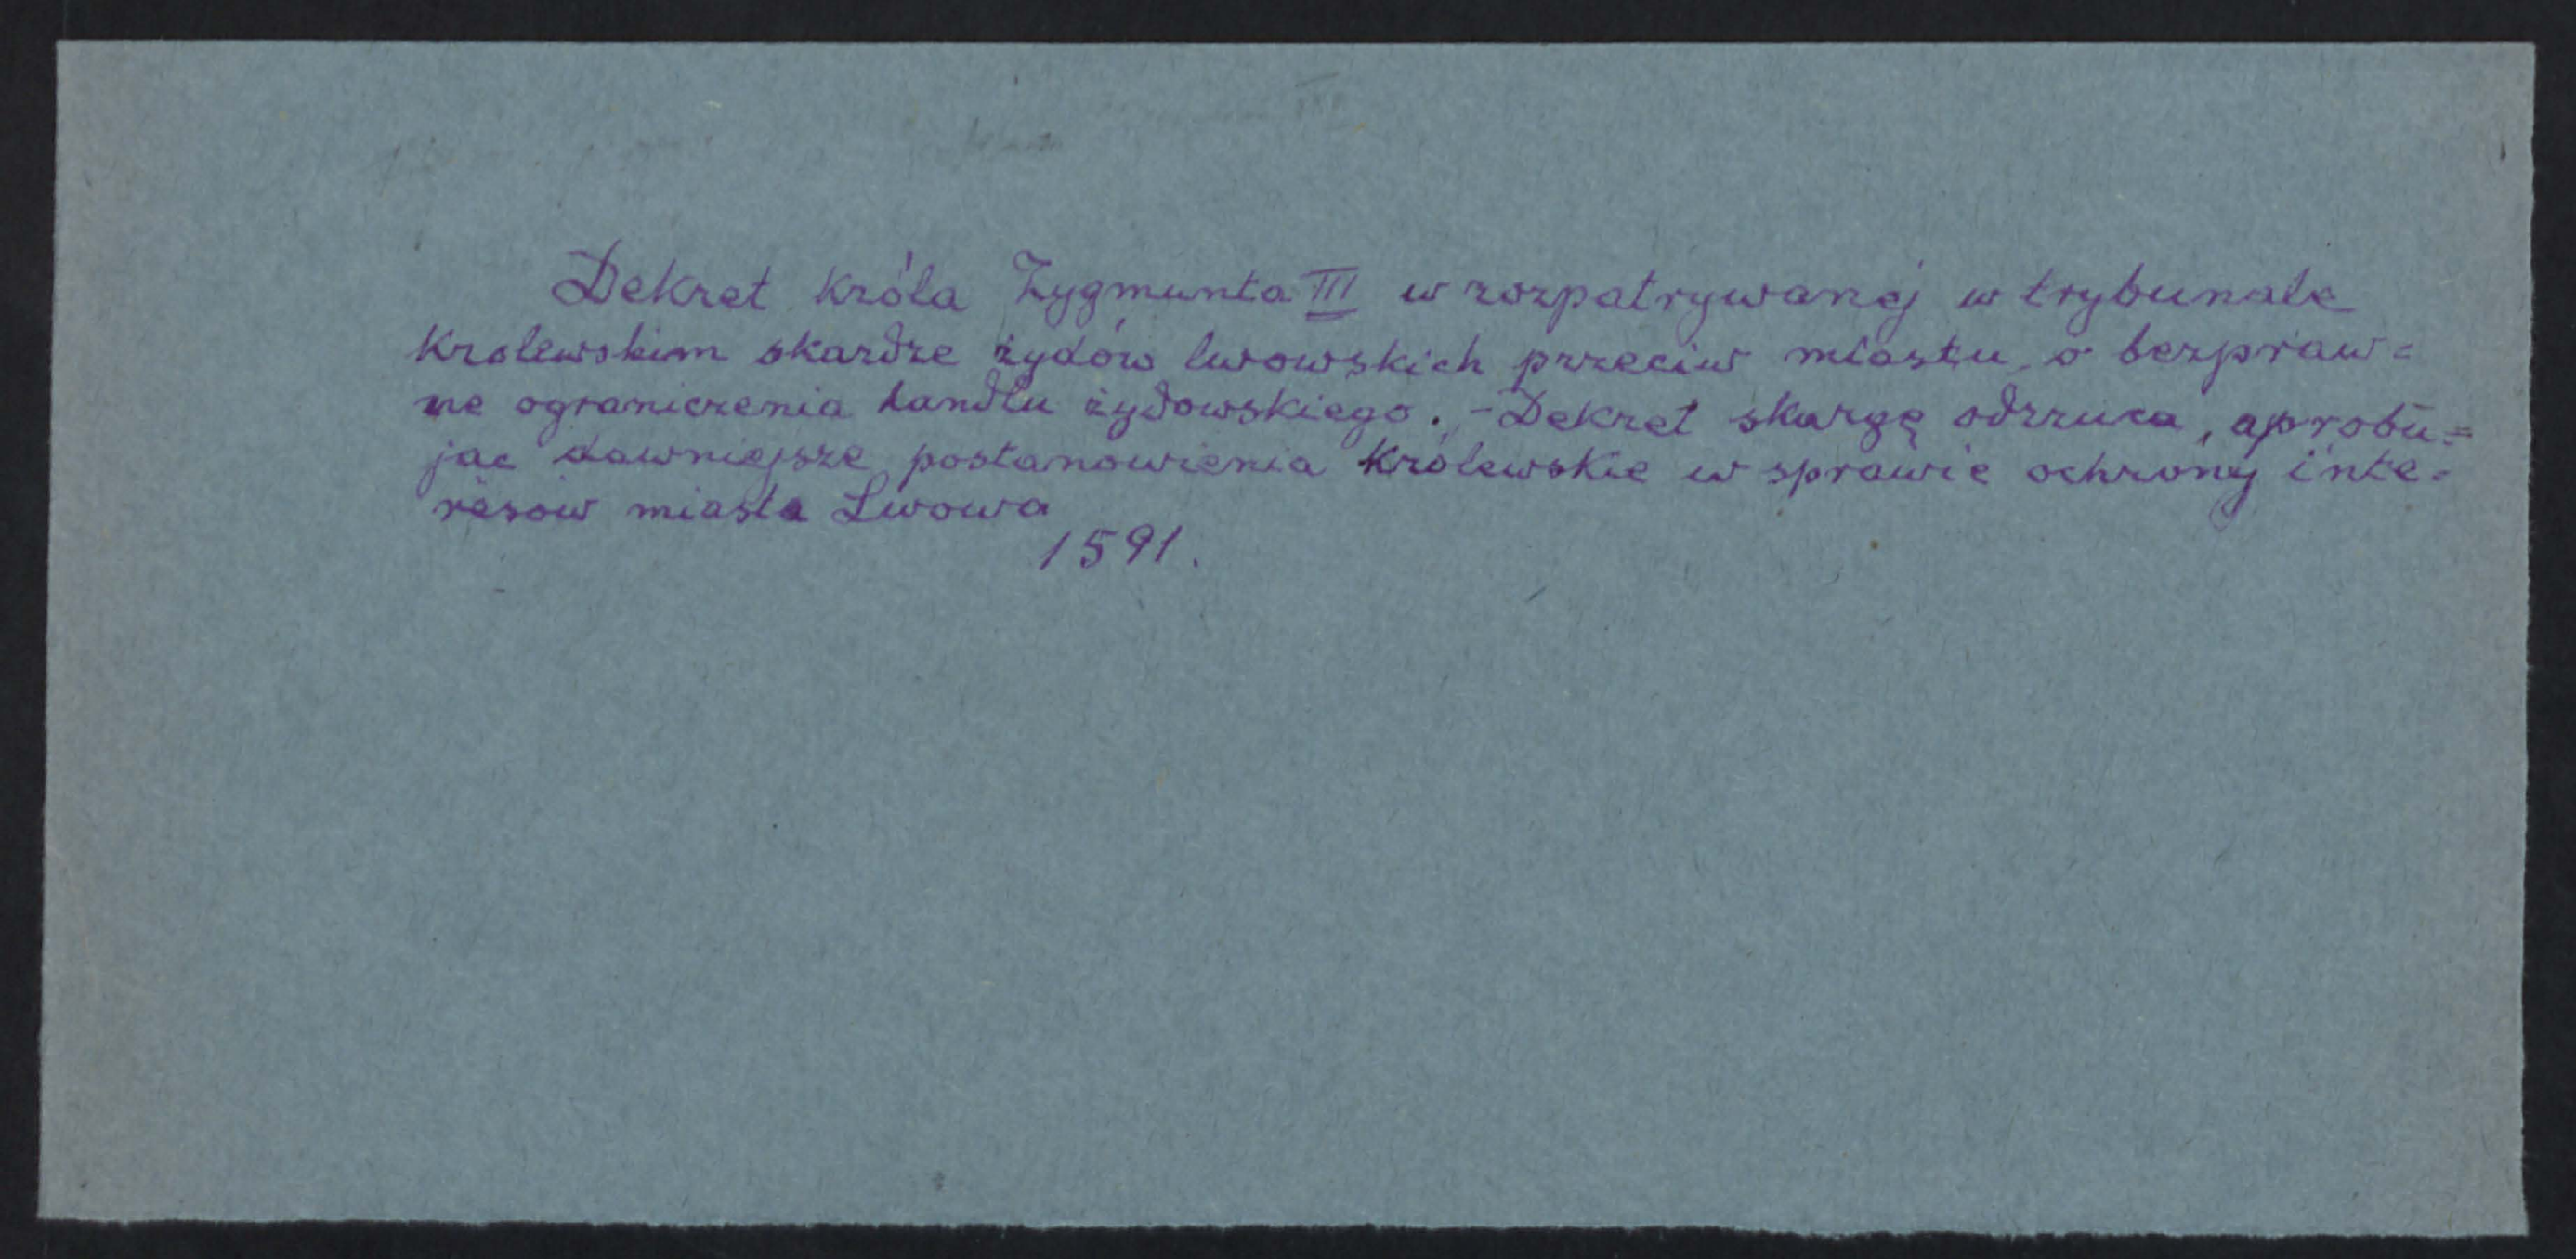 Dekret króla Zygmunta III w rozpatrywanej w trybunale
Krolewskim skardze żydów lwowskich przeciw miastu, o bezpraw=
ne ograniczenia handlu żydowskiego. - Dekret skargę odrzuca, aprobu=
jac dawniejsze postanowienia Królewskie w sprawie ochrony inte=
resów miasta Lwowa
1591.